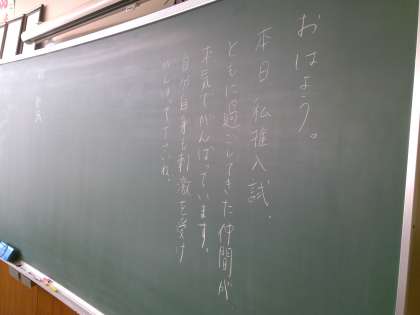 おはよう。
本日、私権入試。
ともに過ごしてきた仲間が
本気でがんばっています。
自分自身も刺激を受け
がんばっていこうね。